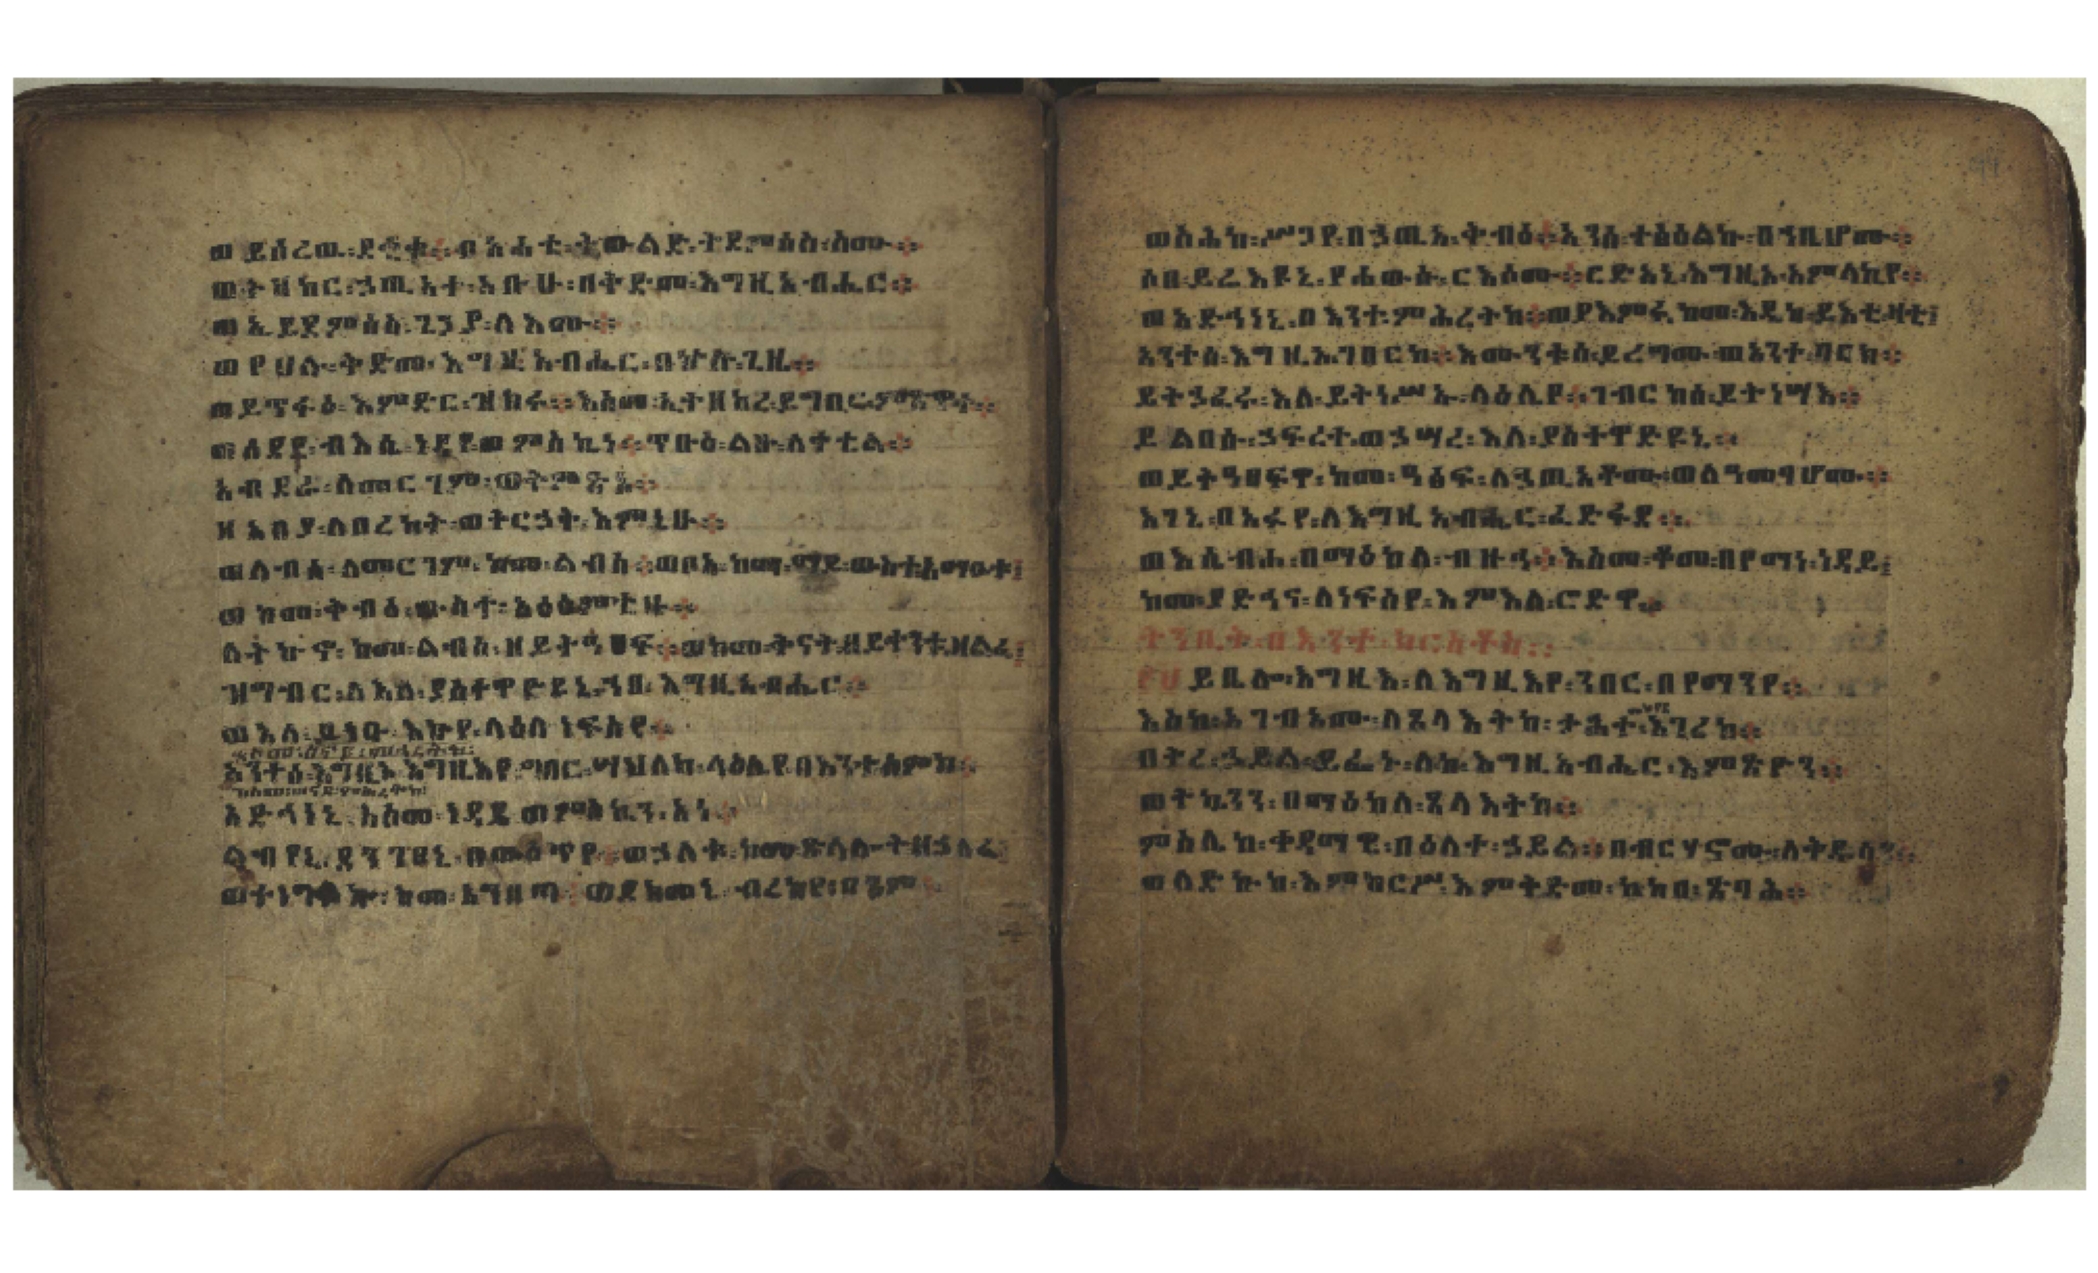 ወይሰረዉ፡ደቂቁ፨በአሐቲ፡ትውልድ፡ትደምሰስ፡ስሙ፨
ወትዝከር፡ኃጢአተ፡አቡሁ፡በቅድመ፡እግዚአብሔር፨
ወኢይደምሰስ፡ጌጋያ፡ለእሙ፨
ወየሀሉ፡ቅድመ፡እግዚአብሔር፡በኵሉ፡ጊዜ፨
ወይጥፋዕ፡እምድር፡ዝክሩ፨እስመ፡ኢተዘከረ፡ይግበር፡ምጽዋተ፨
ወሰደደ፡ብእሴ፡ነዳየ፡ወምስኪነ፨ጥቡዕ፡ልቡ፡ለቀቲል፨
አብደራ፡ለመርገም፡ወትምጽኦ፨
ዘአበያ፡ለበረከት፡ወትርኃቅ፡እምኔሁ፨
ወለብሳ፡ለመርገም፡ከመ፡ልብስ፨ወቦአ፡ከመ፡ማይ፡ውስተ፡አማዑቱ፤
ወከመ፡ቅብዕ፡ውስተ፡አዕፅምቲሁ፨
ለትኩኖ፡ከመ፡ልብስ፡ዘይትዓፀፍ፨ወከመ፡ቅናት፡ዘይቀንት፡ዘልፈ፤
ዝግብር፡ለእለ፡ያስተዋድዩኒ፡ኀበ፡እግዚአብሔር፨
ወእለ፡ይነቡ፡እኩየ፡ላዕለ፡ነፍስየ፨
አንተሰ፡እግዚእ፡እግዚእየ፡ግበር፡ሣህለከ፡ላዕሌየ፡በእንተ፡ስምከ፨
አድኅነኒ፡እስመ፡ነዳይ፡ወምስኪን፡አነ፨
ልብየኒ፡ደንገፀኒ፡በውስጥየ፨ወኃለቁ፡ከመ፡ጽላሎት፡ዘኃለፈ፤
ወተነገፍኩ፡ከመ፡አንበጣ፨ወደክመኒ፡ብረክየ፡በጾም፨
ወስሕከ፡ሥጋየ፡በኃጢአ፡ቅብዕ፨አንሰ፡ተፅዕልኩ፡በኀቤሆሙ፨
ሶበ፡ይሬእዩኒ፡የሐውሱ፡ርእሶሙ፨ርድአኒ፡እግዚእ፡አምላኪየ፨
ወአድኅነኒ፡በእንተ፡ምሕረትከ፨ወያእምሩ፡ከመ፡እዴከ፡ይእቲ፡ዛቲ፤
አንተሰ፡እግዚኦ፡ገበርከ፨እሙንቱሰ፡ይረግሙ፡ወአንተ፡ባርክ፨
ይትኃፈሩ፡እለ፡ይትነሥኡ፡ላዕሌየ፨ገብርከሰ፡ይትነሣእ፨
ይልበሱ፡ኃፍረተ፡ወኃሣረ፡እለ፡ያስተዋድዩኒ፨
ወይትዓፀፍዋ፡ከመ፡ዓፅፍ፡ለኃጢአቶሙ፡ወለዓመፃሆሙ፨
እገኒ፡በአፉየ፡ለእግዚአብሔር፡ፈድፋደ፨
ወእሴብሖ፡በማዕከለ፡ብዙኅ፨እስመ፡ቆመ፡በየማነ፡ነዳይ፤
ከመ፡ያድኅና፡ለነፍስየ፡እምእለ፡ሮድዋ፨
ትንቢት፡በእንተ፡ክርስቶስ፨
፻፱ይቤሎ፡እግዚእ፡ለእግዚእየ፡ንበር፡በየማንየ፨
እስከ፡አገብኦሙ፡ለጸላእትከ፡ታሕተ፡እገሪከ፨
በትረ፡ኃይል፡ይፌኑ፡ለከ፡እግዚአብሔር፡እምጽዮን፨
ወትኴንን፡በማዕከለ፡ጸላእትከ፨
ምስሌከ፡ቀዳማዊ፡በዕለተ፡ኃይል፨በብርሃኖሙ፡ለቅዱሳን፨
ወለድኩከ፡እምከርሥ፡እምቅድመ፡ኮከበ፡ጽባሕ፨